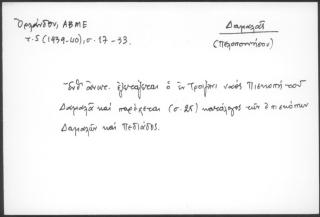 Ὀρλάνδου, ΑΒΜΕ Δαμαλᾶς
τ. 5 (1939-40), σ. 17-33. (Πελοποννήσου)
Ἔνθ' ἀνωτ. ἐξετάζεται ὁ ἐν Τροιζῆνι ναός Πισκοπή τοῦ
Δαμαλᾶ καί παρέχεται (σ. 25) κατάλογος τῶν ἐπισκόπων
Δαμαλῶν καί Πεδιάδος.